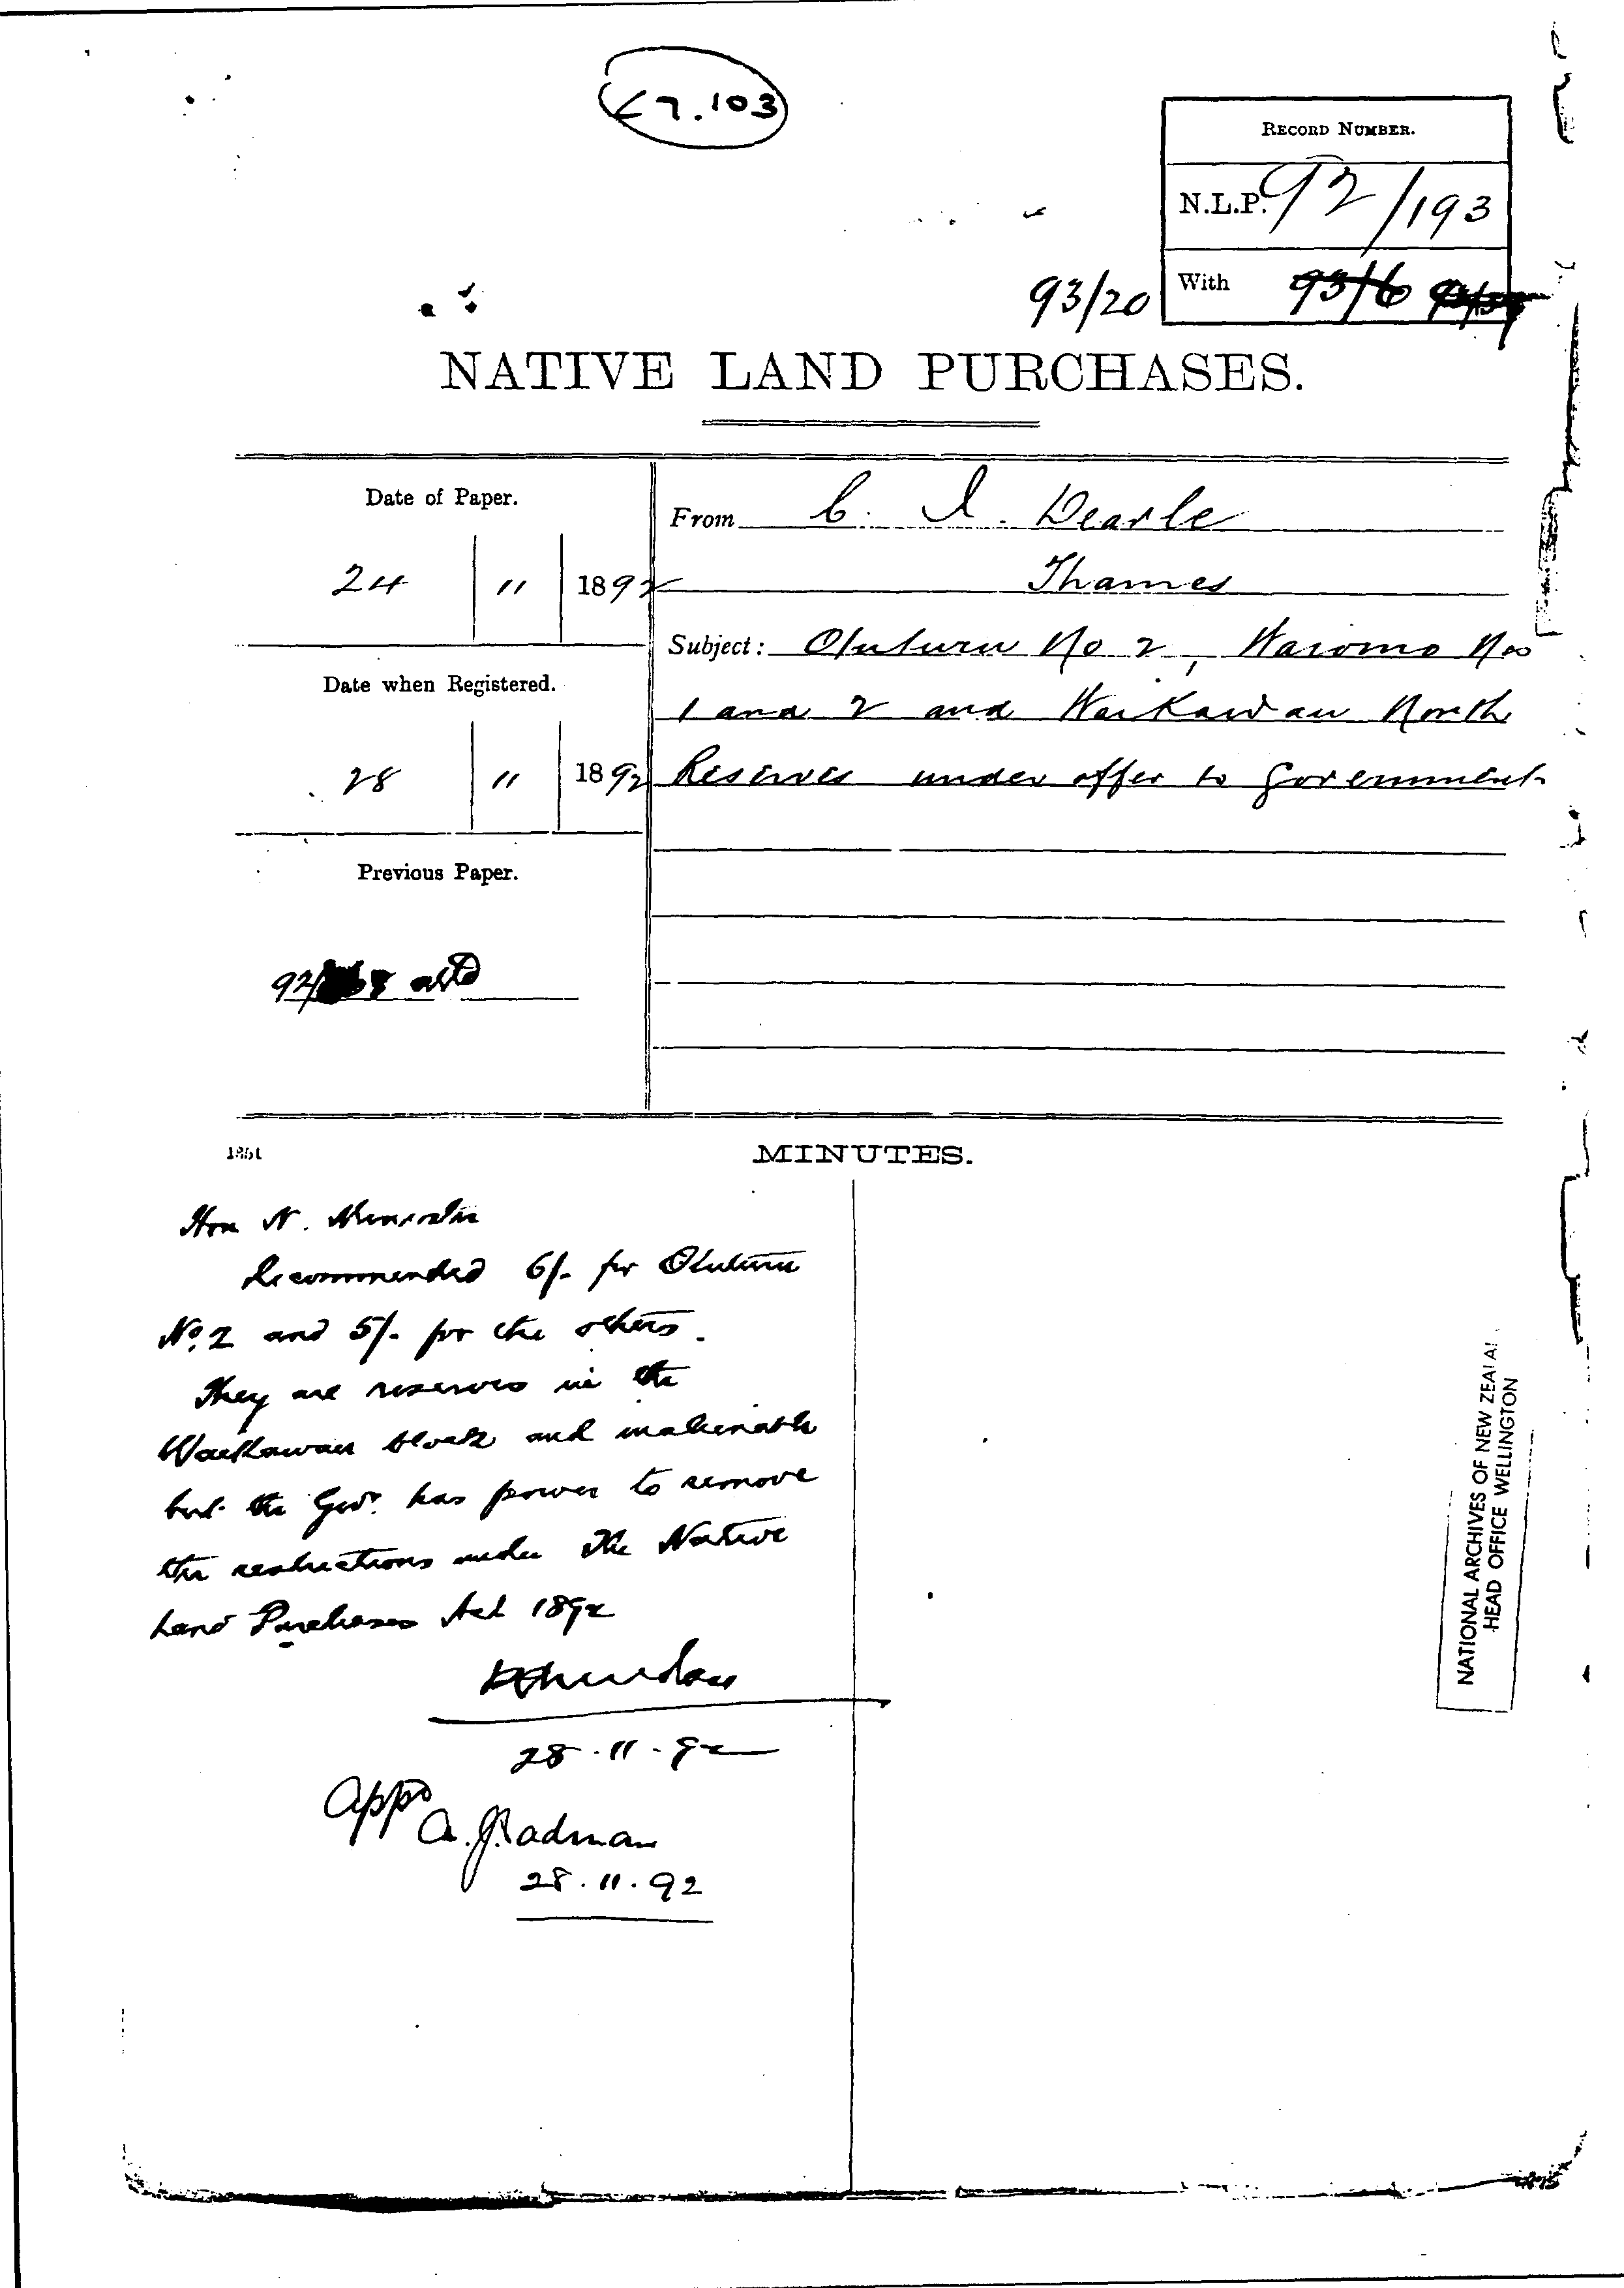 67.103
RECORD NUMBER.
N.L.P. 92/193
With 93/6
93/20
NATIVE LAND PURCHASES.
Date of Paper.
24 11 1892
Date when Registered.
28 11 1892
Previous Paper.
92/
From C. J. Dearle
Thames
Subject: Otuturu No 2, Waromo Nos
1 and 2 and Waikawau North
Reserves under offer to Government
1351
MINUTES.
Hon N. Minister
Recommended 6/- for Otuturu
No. 2 and 5/- for the others.
They are reserves in the
Waikawau block and inalienable
but the Govr. has power to remove
the restrictions under The Native
Land Purchases Act 1892
28.11.92
Appd
A. J. Cadman
28.11.92
NATIONAL ARCHIVES OF NEW ZEALA
HEAD OFFICE WELLINGTON